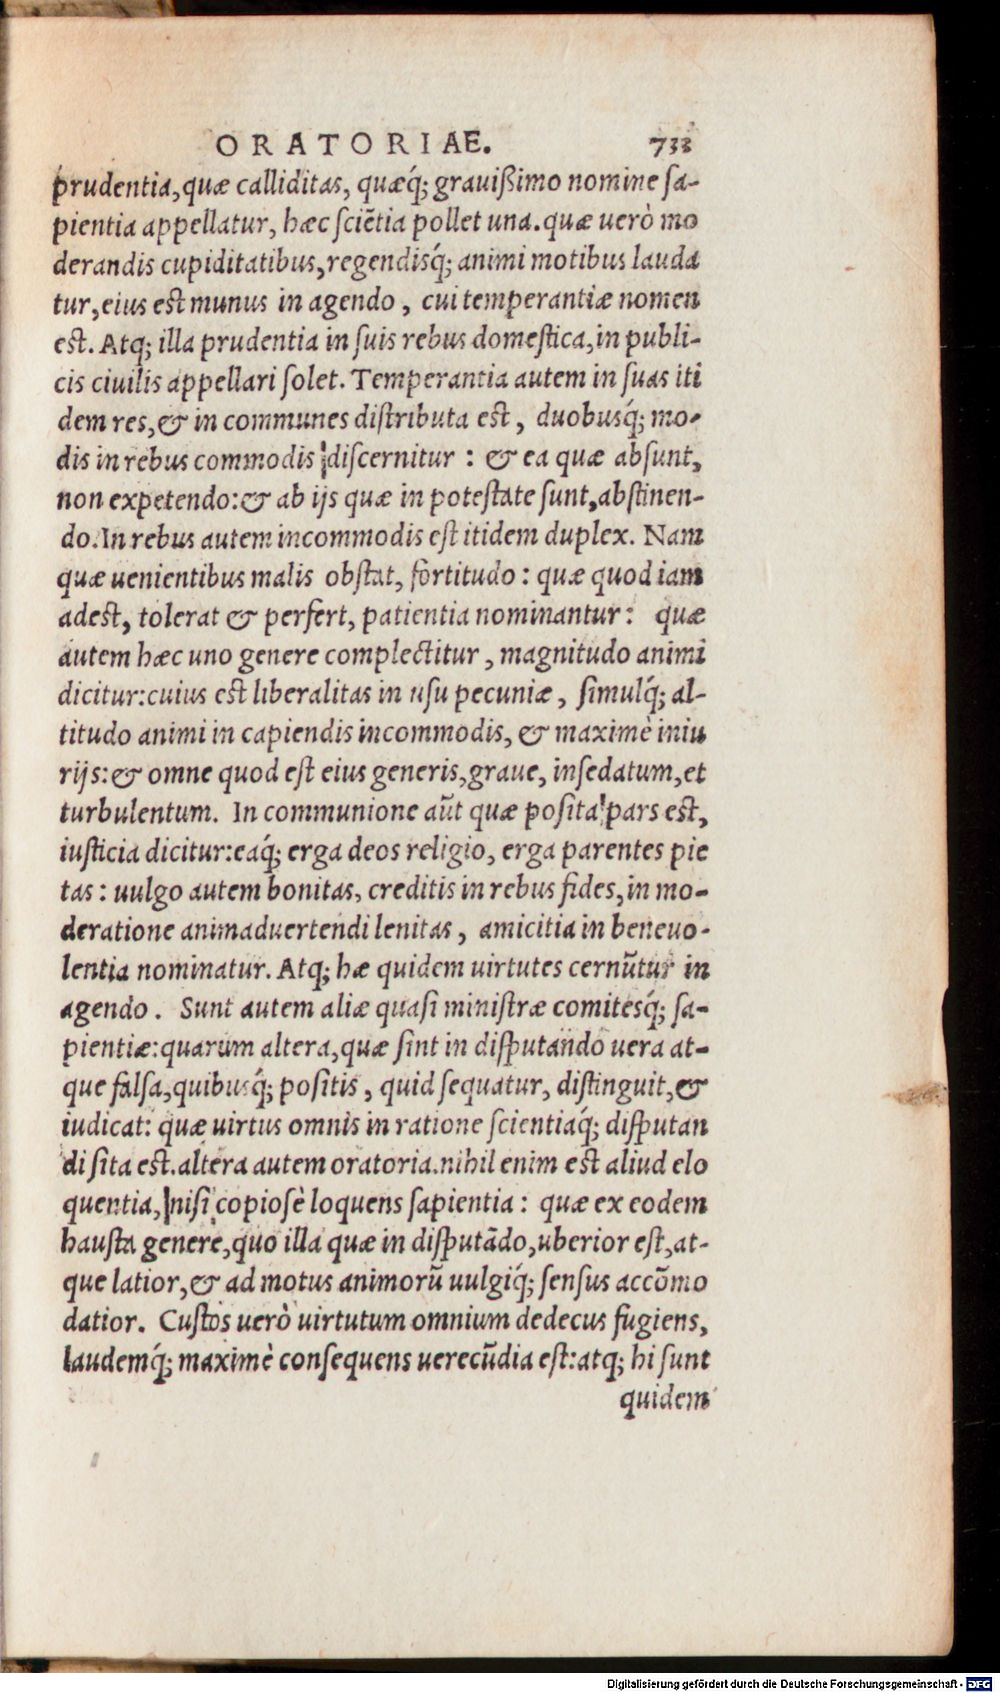 ORATORIAE. 733
prudentia, quæ calliditas, quæq́; grauißimo nomine sa-
pientia appellatur, hæc sciẽtia pollet una. quæ uerò mo
derandis cupiditatibus, regendisq́; animi motibus lauda
tur, eius est munus in agendo, cui temperantiæ nomen
est. Atq; illa prudentia in suis rebus domestica, in publi-
cis ciuilis appellari solet. Temperantia autem in suas iti
dem res, & in communes distributa est, duobusq́; mo-
dis in rebus commodis discernitur: & ea quæ absunt,
non expetendo: & ab ijs quæ in potestate sunt, abstinen-
do. In rebus autem incommodis est itidem duplex. Nam
quæ uenientibus malis obstat, fortitudo: quæ quod iam
adest, tolerat & perfert, patientia nominantur: quæ
autem hæc uno genere complectitur, magnitudo animi
dicitur: cuius est liberalitas in usu pecuniæ, simulq́; al-
titudo animi in capiendis incommodis, & maximè iniu
rijs: & omne quod est eius generis, graue, insedatum, et
turbulentum. In communione aũt quæ posita pars est,
iusticia dicitur: eaq́; erga deos religio, erga parentes pie
tas: uulgo autem bonitas, creditis in rebus fides, in mo-
deratione animaduertendi lenitas, amicitia in beneuo-
lentia nominatur. Atq; hæ quidem uirtutes cernũtur in
agendo. Sunt autem aliæ quasi ministræ comitesq́; sa-
pientiæ: quarum altera, quæ sint in disputando uera at-
que falsa, quibusq́; positis, quid sequatur, distinguit, &
iudicat: quæ uirtus omnis in ratione scientiaq́; disputan
di sita est. altera autem oratoria. nihil enim est aliud elo
quentia, nisi copiosè loquens sapientia: quæ ex eodem
hausta genere, quo illa quæ in disputãdo, uberior est, at-
que latior, & ad motus animorũ uulgiq́; sensus accõmo
datior. Custos uerò uirtutum omnium dedecus fugiens,
laudemq́; maximè consequens uerecũdia est: atq; hi sunt
quidem
Digitalisierung gefördert durch die Deutsche Forschungsgemeinschaft - DFG